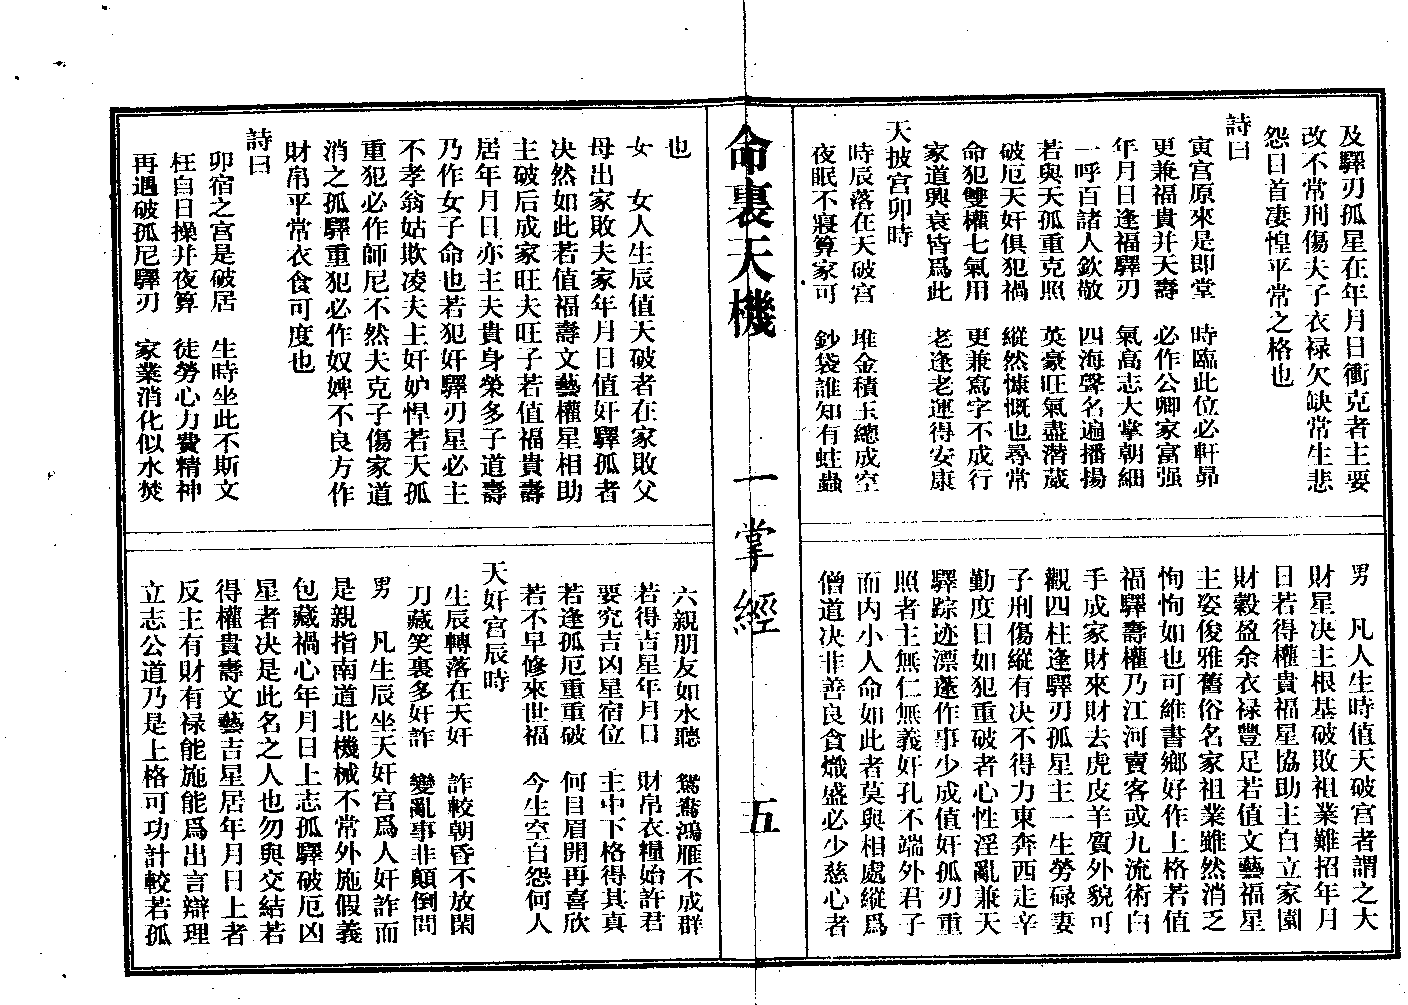 及驛刃孤星在年月日衝克者主要
改不常刑傷夫子衣禄欠缺常生悲
怨日首凄惶平常之格也
詩曰
寅宮原來是即堂　時臨此位必軒昴
更兼福貴并天壽　必作公卿家富强
年月日逢福驛刃　氣高志大掌朝細
一呼百諸人欽敬　四海聲名遍播揚
若與天孤重克照　英豪旺氣盡潛葳
破厄天奸俱犯禍　縱然慷慨也尋常
命犯雙權七氣用　更兼寫字不成行
家道興衰皆爲此　老逢老運得安康
天披宮卯時
時辰落在天破宮　堆金積玉總成空
夜眠不寢算家可　鈔袋誰知有蛀蟲
男　凡人生時值天破宮者謂之大
財星决主根基破敗祖業難招年月
日若得權貴福星協助主白立家園
財穀盈余衣禄豐足若值文藝福星
主姿俊雅舊俗名家祖業雖然消乏
恂恂如也可維書鄉好作上格若值
福驛壽權乃江河賣客或九流術白
手成家財來財去虎皮羊質外貌可
觀四柱逢驛刃孤星主一生勞碌妻
子刑傷縱有决不得力東奔西走辛
勤度日如犯重破者心性淫亂兼天
驛踪迹漂蓬作事少成值奸孤刃重
照者主無仁無義奸孔不端外君子
而内小人命如此者莫與相處縱爲
僧道决非善良貪熾盛必少慈心者
命裏天機　一掌經　五
也
女　女人生辰值天破者在家敗父
母出家敗夫家年月日值奸驛孤者
决然如此若值福壽文藝權星相助
主破后成家旺夫旺子若值福貴壽
居年月日亦主夫貴身榮多子道壽
乃作女子命也若犯奸驛刃星必主
不孝翁姑欺凌夫主奸妒悍若天孤
重犯必作師尼不然夫克子傷家道
消之孤驛重犯必作奴婢不良方作
財帛平常衣食可度也
詩曰
卯宿之宮是破居　生時坐此不斯文
枉自日操并夜算　徒勞心力費精神
再遇破孤尼驛刃　家業消化似水焚
六親朋友如水聽　鴛鴦鴻雁不成群
若得吉星年月日　財帛衣糧始許君
要究吉凶星宿位　主中下格得其真
若逢孤厄重重破　何目眉開再喜欣
若不早修來世福　今生空白怨何人
天奸宮辰時
生辰轉落在天奸　詐較朝昏不放閑
刀藏笑裏多奸詐　變亂事非顛倒間
男　凡生辰坐天奸宮爲人奸詐而
是親指南道北機械不常外施假義
包藏禍心年月日上志孤驛破厄凶
星者决是此名之人也勿與交結若
得權貴壽文藝吉星居年月日上者
反主有財有禄能施能爲出言辯理
立志公道乃是上格可功計較若孤